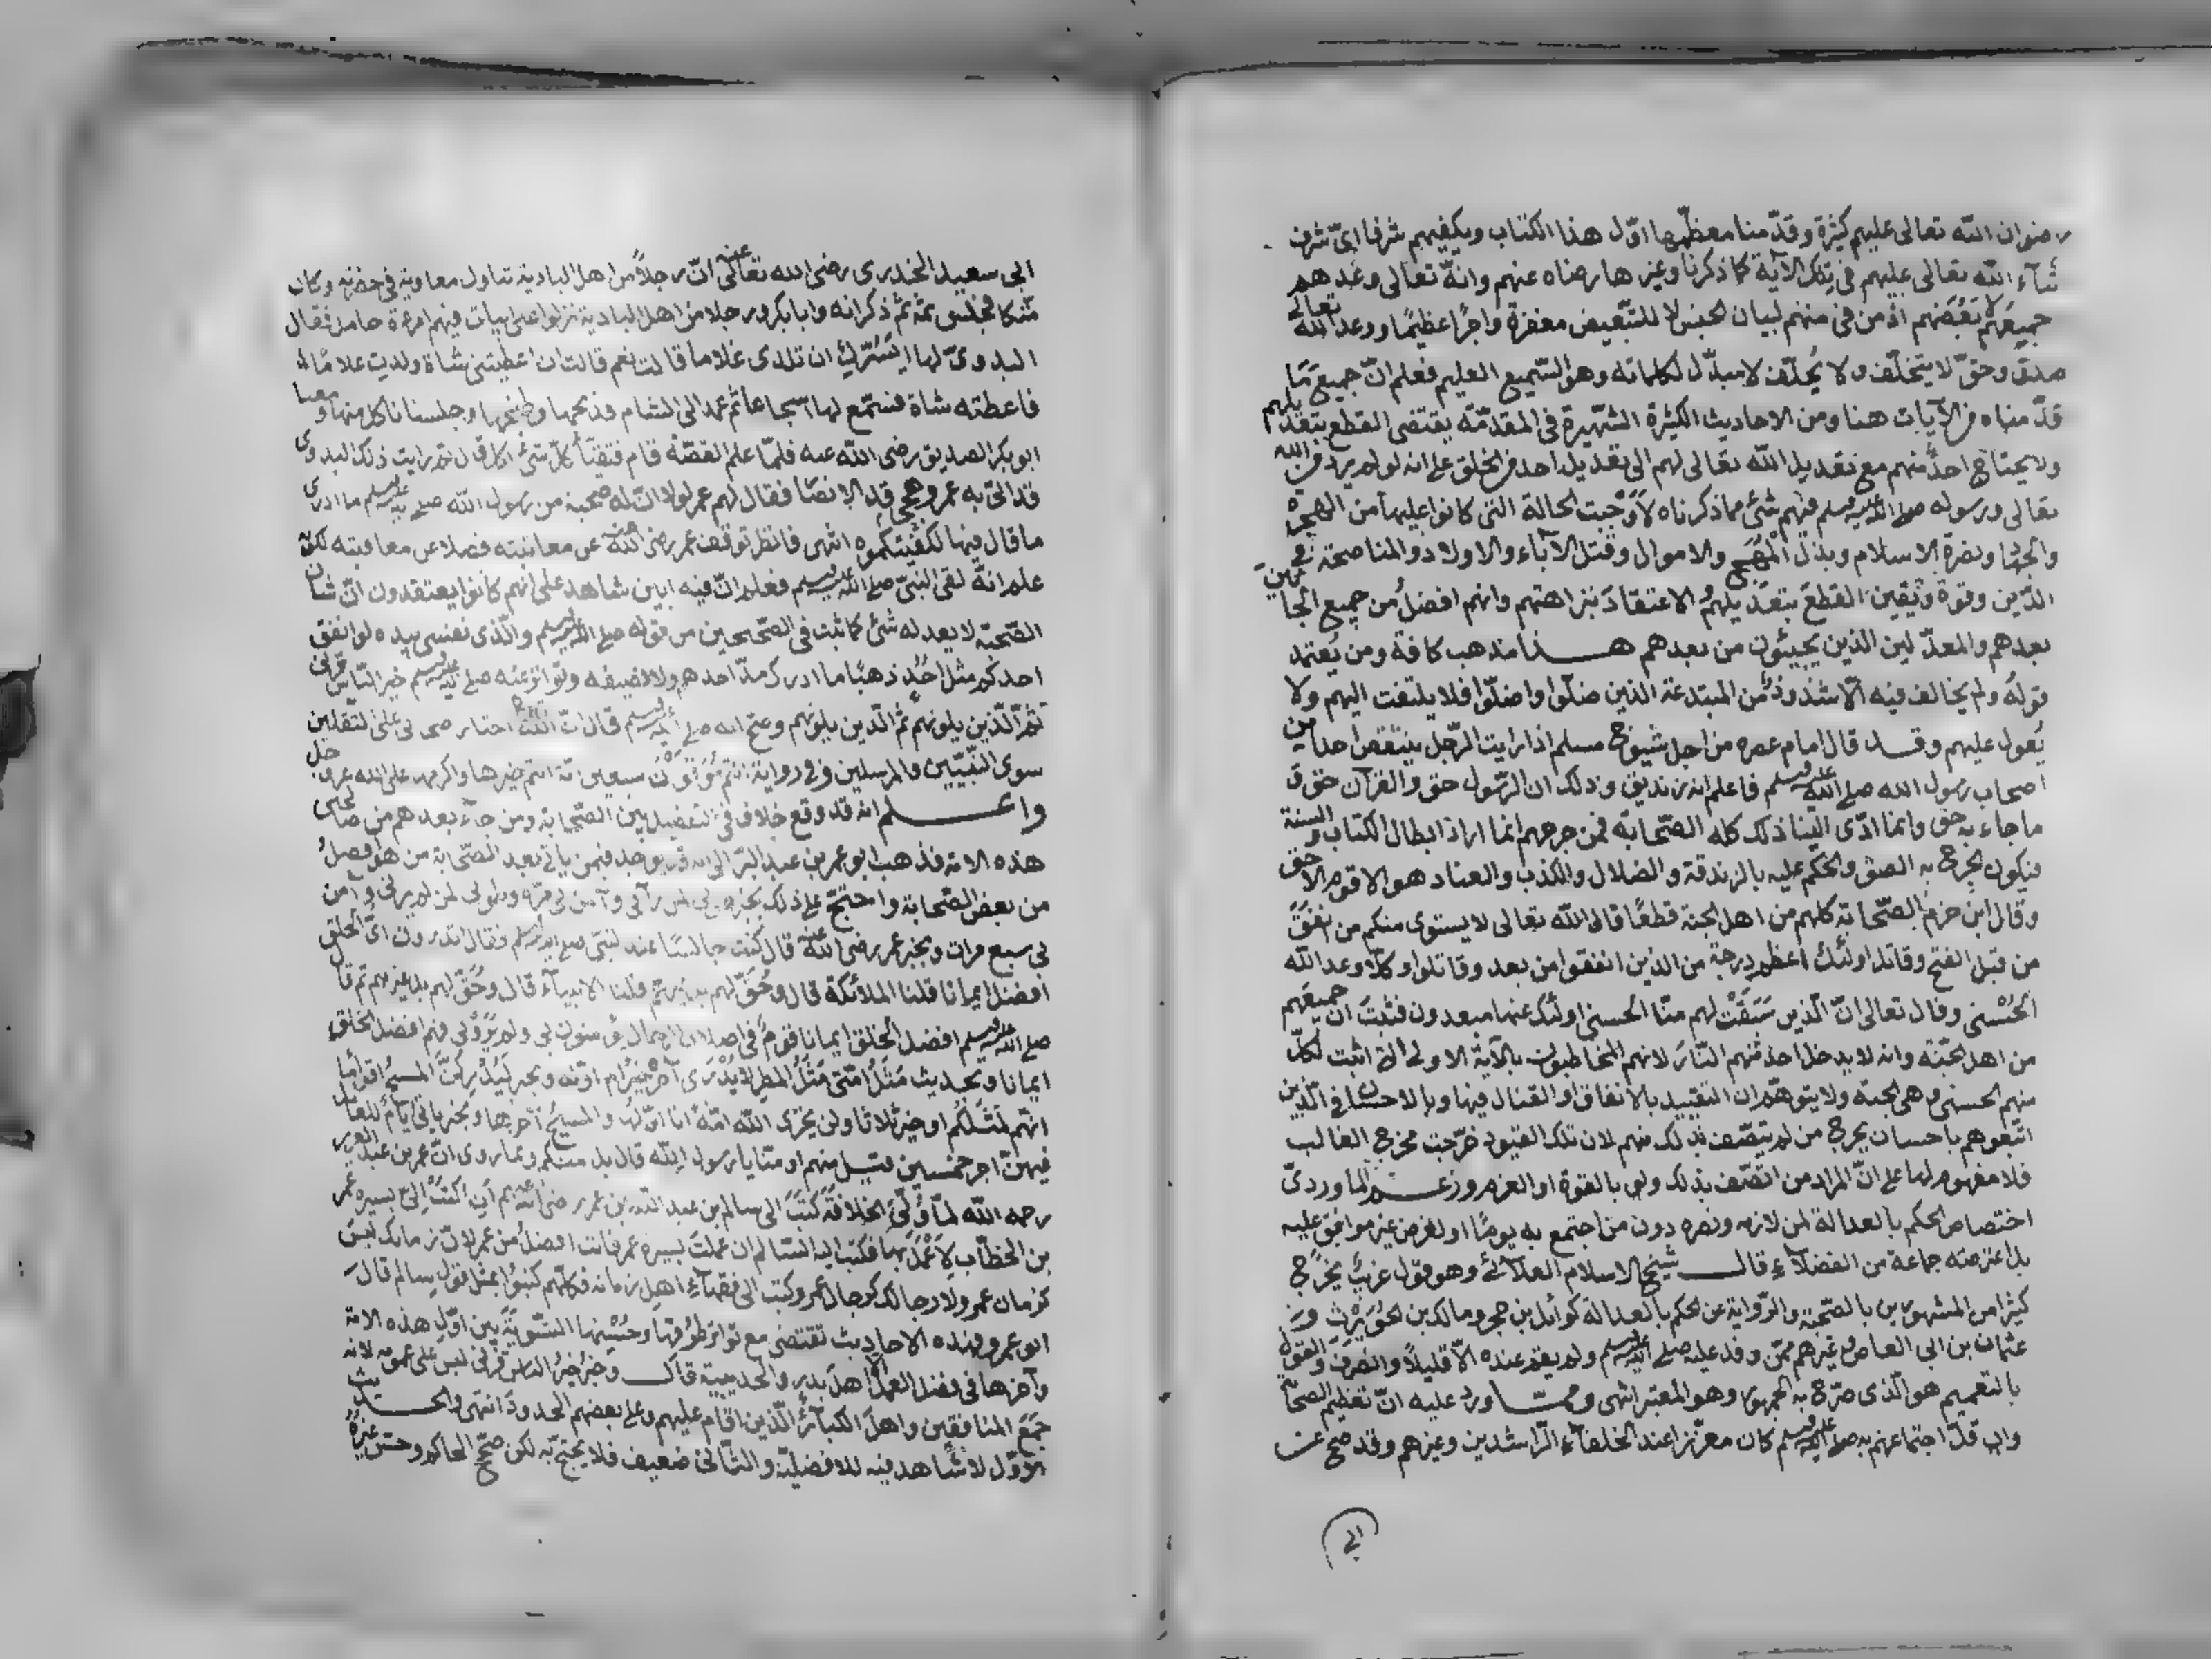 رضوان الله تعالى عليهم كثيرة وقد قدمنا معظمها اول هذا الكتاب ويكفيهم شرفا اىّ شرف
ثناء الله تعالى عليهم فى تلك الآية كما ذكرنا وغيرها رضاه عنهم وانه تعالى وعدهم
جميعهم لا بعضهم اذ من فى منهم لبيان الجنس لا للتبعيض مغفرة واجرا عظيما ووعد الله تعالى
صدق وحق لا يتخلف ولا يُخلف لا مبدّل لكلماته وهو السميع العليم فعلم انّ جميع ما
قدمناه من الآيات هنا ومن الاحاديث الكثيرة الشهيرة فى المقدمة يقتضى القطع بتعديلهم
ولا يحتاج احد منهم مع تعديل الله تعالى لهم الى تعديل احد من الخلق على انه لو لم يرد من الله
تعالى ورسوله صلى الله عليه وسلم فيهم شئ مما ذكرناه لأوجبت الحالة التى كانوا عليها من الهجرة
والجهاد ونصرة الاسلام وبذل المُهَج والاموال وقتل الآباء والاولاد والمناصحة فى
الدّين وقوة ويقين القطع بتعديلهم الاعتقاد بنزاهتهم وانهم افضل من جميع الجائين
بعدهم والمعدّلين الذين يجيئون من بعدهم هذا مذهب كافة ومن يُعتمد
قوله ولم يخالف فيه الا شذوذ من المبتدعة الذين ضلّوا واضلّوا فلا يلتفت اليهم ولا
يُعول عليهم وقد قال امام عصره من اجل شيوخ مسلم اذا رايت الرّجل ينتقص احدا من
اصحاب رسول الله صلى الله عليه وسلم فاعلم انه زنديق وذلك ان الرّسول حق والقرآن حق و
ما جاء به حق وانما ادّى الينا ذلك كله الصّحابة فمن جرحهم انما اراد ابطال الكتاب والسنة
فيكون الجرح به الصق والحكم عليه بالزندقة والضلال والكذب والعناد هو الاقوم الاحق
وقال ابن حزم الصّحابة كلهم من اهل الجنة قطعًا قال الله تعالى لا يستوى منكم من انفق
من قبل الفتح وقاتل اولئك اعظم درجة من الذين انفقوا من بعد وقاتلوا وكلّا وعد الله
الحُسْنى وقال تعالى انّ الّذين سَبَقَتْ لهم منّا الحسنى اولئك عنها مبعدون فثبت انّ جميعهم
من اهل الجنّة وانه لا يدخل احد منهم النّار لانهم المخاطبون بالآية الاولى التى اثبت لكلّ
منهم الحسنى وهى الجنة ولا يتوهّم ان التقييد بالانفاق او القتال فيها وبالاحسان فى الّذين
اتّبعوهم باحسان يخرج من لم يتصف بذلك منهم لان تلك القيود خرّجت مخرج الغالب
فلا مفهوم لها على انّ المراد من اتّصف بذلك ولو بالقوة او العزم وزعم الماوردىّ
اختصاص الحكم بالعدالة لمن لازمه ونصره دون من اجتمع به يومًا او لغرض غير موافق عليه
بل اعترضه جماعة من الفضلاء قال شيخ الاسلام العلائى وهو قول غريب يخرّج
كثيرا من المشهورين بالصّحبة والرّواية عن الحكم بالعدالة كوائل بن حجر ومالك بن الحُوَيْرث و
عثمان بن ابى العاص وغيرهم ممّن وفد عليه صلى الله عليه وسلم ولم يقم عنده الّا قليلًا وانصرف والقول
بالتعميم هو الّذى صرّح به الجمهور وهو المعتبر انتهى وممّا ورد عليه انّ تعظيم الصحابة
وان قلّ اجتماعهم به صلى الله عليه وسلم كان مقرّرا عند الخلفآء الرّاشدين وغيرهم وقد صح عن
الى
ابى سعيد الخدرى رضى الله تعالى عنه انّ رجلاً من اهل البادية تناول معاوية فى حضرته وكان
متّكئا فجلس ثمّ ذكر انه وابا بكر ورجلا من اهل البادية نزلوا على ابيات فيهم امرءة حامل فقال
البدوىّ لها ايَسُرّكِ ان تلدى غلاما قالت نعم قالت ان اعطيتنى شاة ولدتِ غلامًا
فاعطته شاة فسجّع لها اسجاعا ثمّ عمد الى الشاة فذبحها وطبخها وجلسنا ناكل منها ومعنا
ابو بكر الصديق رضى الله عنه فلمّا علم القصّة قام فتقيّأ كلّ شئ اكل قال ثم رايت ذلك البدوى
قد اتى به عمر وهجى الانصار فقال لهم عمر لولا انّ له صحبة من رسول الله صلى الله عليه وسلم ما ادرى
ما قال فيها لكفيتكموه انتهى فانظر توقف عمر رضى الله عنه عن معاتبته فضلا عن معاقبته لكونه
علم انه لقى النبىّ صلى الله عليه وسلم فعلم انّ فيه ابين شاهد على انهم كانوا يعتقدون انّ شأن
الصّحبة لا يعدله شئ كما ثبت فى الصّحيحين من قوله صلى الله عليه وسلم والّذى نفسى بيده لو انفق
احدكم مثل اُحُد ذهبًا ما ادرك مدّ احدهم ولا نصيفه وتواتر عنه صلى الله عليه وسلم خير النّاس قرنى
ثمّ الّذين يلونهم ثمّ الّذين يلونهم وصحّ انه صلى الله عليه وسلم قال انّ الله اختار صحابى على الثّقلين
سوى النّبيّين والمرسلين وفى رواية انتم تُوفون سبعين امّة انتم خيرها واكرمها على الله عزّ وجل
واعلم انه قد وقع خلاف فى التفضيل بين الصّحابة ومن جآء بعدهم من صالحى
هذه الامة فذهب ابو عمر بن عبد البرّ الى انه قد يوجد فيمن يأتى بعد الصّحابة من هو افضلُ
من بعض الصّحابة واحتجّ على ذلك بخبر طوبى لمن رآنى وآمن بى مرّة وطوبى لمن لم يرنى وآمن
بى سبع مرات وبخبر عمر رضى الله عنه قال كنت جالسًا عند النبى صلى الله عليه وسلم فقال اتدرون اىّ الخلق
افضل ايمانا قلنا الملائكة قال وحُقّ لهم بل غيرهم قلنا الانبيآء قال وحُقّ لهم بل غيرهم ثم قال
صلى الله عليه وسلم افضل الخلق ايمانا قومٌ فى اصلاب الرجال يؤمنون بى ولم يَرَوْنى فهم افضل الخلق
ايمانا وبحديث مَثَلُ امّتى مَثَلُ المطر لا يُدْرَى آخره خير ام اوّله وبخبر ليُدْرِكنّ المسيح اقواما
انهم لمثلكم او خير ثلاثا ولن يخزى الله امّة انا اوّلها والمسيحُ آخرها وبخبر ياتى ايّام للعامل
فيهنّ اجر خمسين قيل منهم او منّا يا رسول الله قال بل منكم وبما روى انّ عمر بن عبد العزيز
رحمه الله لمّا وُلّى الخلافة كتب الى سالم بن عبد الله بن عمر رضى الله عنهم اَنِ اكتبْ اِلىّ بسيرة عمر
بن الخطّاب لأعْمل بها فكتب اليه سالم ان عملتَ بسيرة عمر فانت افضلُ من عمر لانّ زمانك ليس
كزمان عمر ولا رجالك كرجال عمر وكتب الى فقهآء اهل زمانه فكلّهم كتبوا بمثل قول سالم قال
ابو عمر وهذه الاحاديث تقتضى مع تواتر طُرُقها وحُسْنها التّسويةَ بين اوّل هذه الامة
وآخرها فى فضل العمل الّا اهل بدر والحديبية قال وخبرُ خيرُ الناس قرنى ليس على عمومه لانه
جَمَعَ المنافقين واهلَ الكبآئر الّذين اقام عليهم وعلى بعضهم الحدود انتهى والحديث
الاوّل لا شاهد فيه للافضليّة والثّانى ضعيف فلا يحتجّ به لكن صحّح الحاكم وحسّن غيرُه